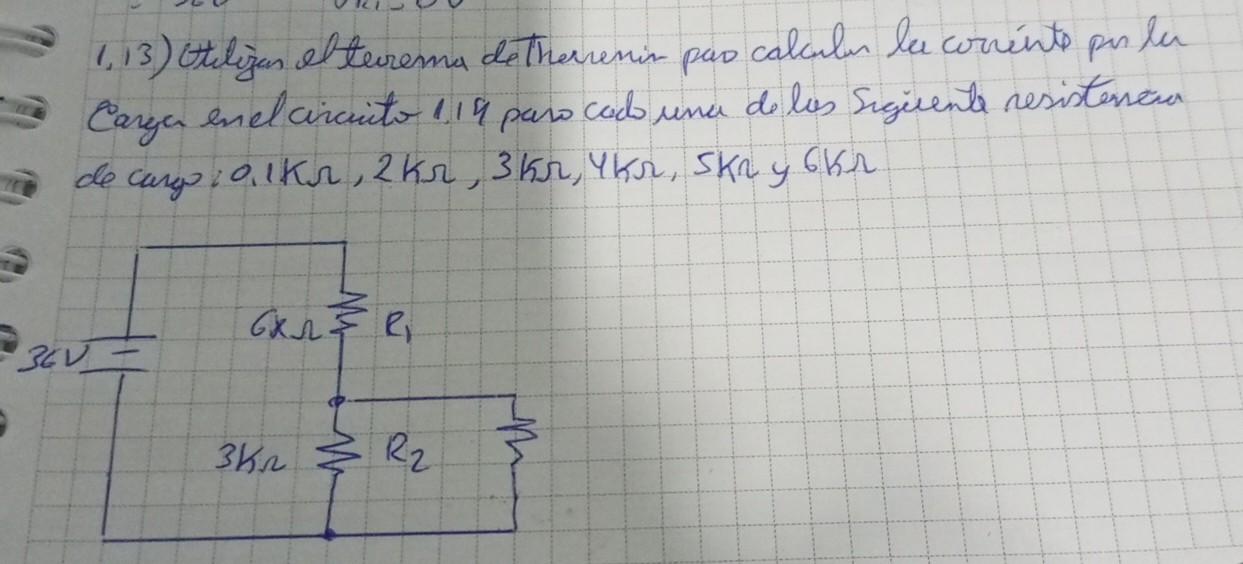 1,13) Utilizan el teorema de Thevenin para calcular la corriente por la
Carga en el circuito 1.19 para cada una de las Siguiente resistencia
de carga: 0,1KΩ, 2KΩ, 3KΩ, 4KΩ, 5KΩ y 6KΩ
6KΩ R1
36V
3KΩ R2